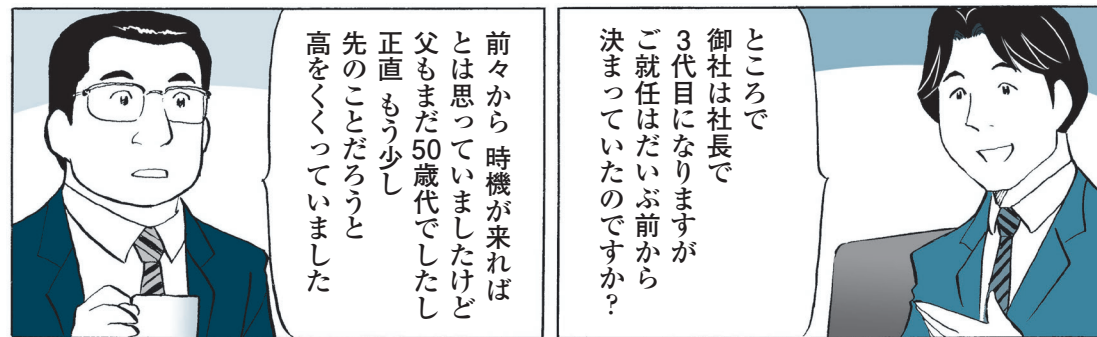 ところで
御社は社長で
3代目になりますが
ご就任はだいぶ前から
決まっていたのですか?
前々から 時機が来れば
とは思っていましたけど
父もまだ50歳代でしたし
正直 もう少し
先のことだろうと
高をくくっていました